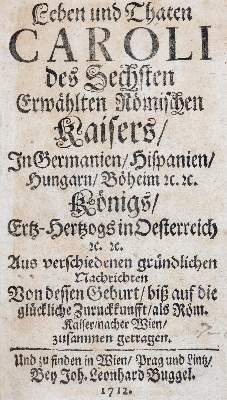 Leben und Thaten
CAROLI
des Sechsten
Erwählten Römischen
Kaisers/
In Germanien/ Hispanien/
Hungarn/ Böheim ꝛc. ꝛc.
Königs/
Ertz-Hertzogs in Oesterreich
ꝛc. ꝛc.
Aus verschiedenen gründlichen
Nachrichten
Von dessen Geburt/ biß auf die
glückliche Zuruckkunfft/ als Röm.
Kaiser/ nacher Wien/
zusammen getragen.
Und zu finden in Wien/ Prag und Lintz/
Bey Joh. Leonhard Buggel.
1712.